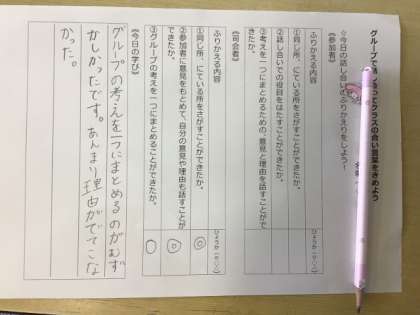 グループで
クラスの合い言葉をきめよう
☆今日の話し合いのふりかえりをしよう!
《参加者》
ふりかえる内容
ひょうか(◎○△)
①同じ所、にている所をさがすことができたか。
②話し合いでの役目をはたすことができたか。
③考えを一つにまとめるための、意見と理由を話すことができたか。
《司会者》
ふりかえる内容
ひょうか(◎○△)
①同じ所、にている所をさがすことができたか。
◎
②参加者に意見をもとめて、自分の意見や理由も話すことができたか。
◎
③グループの考えを一つにまとめることができたか。
○
《今日の学び》
グループの考えを一つにまとめるのがむず
かしかったです。あんまり理由がでてこな
かった。